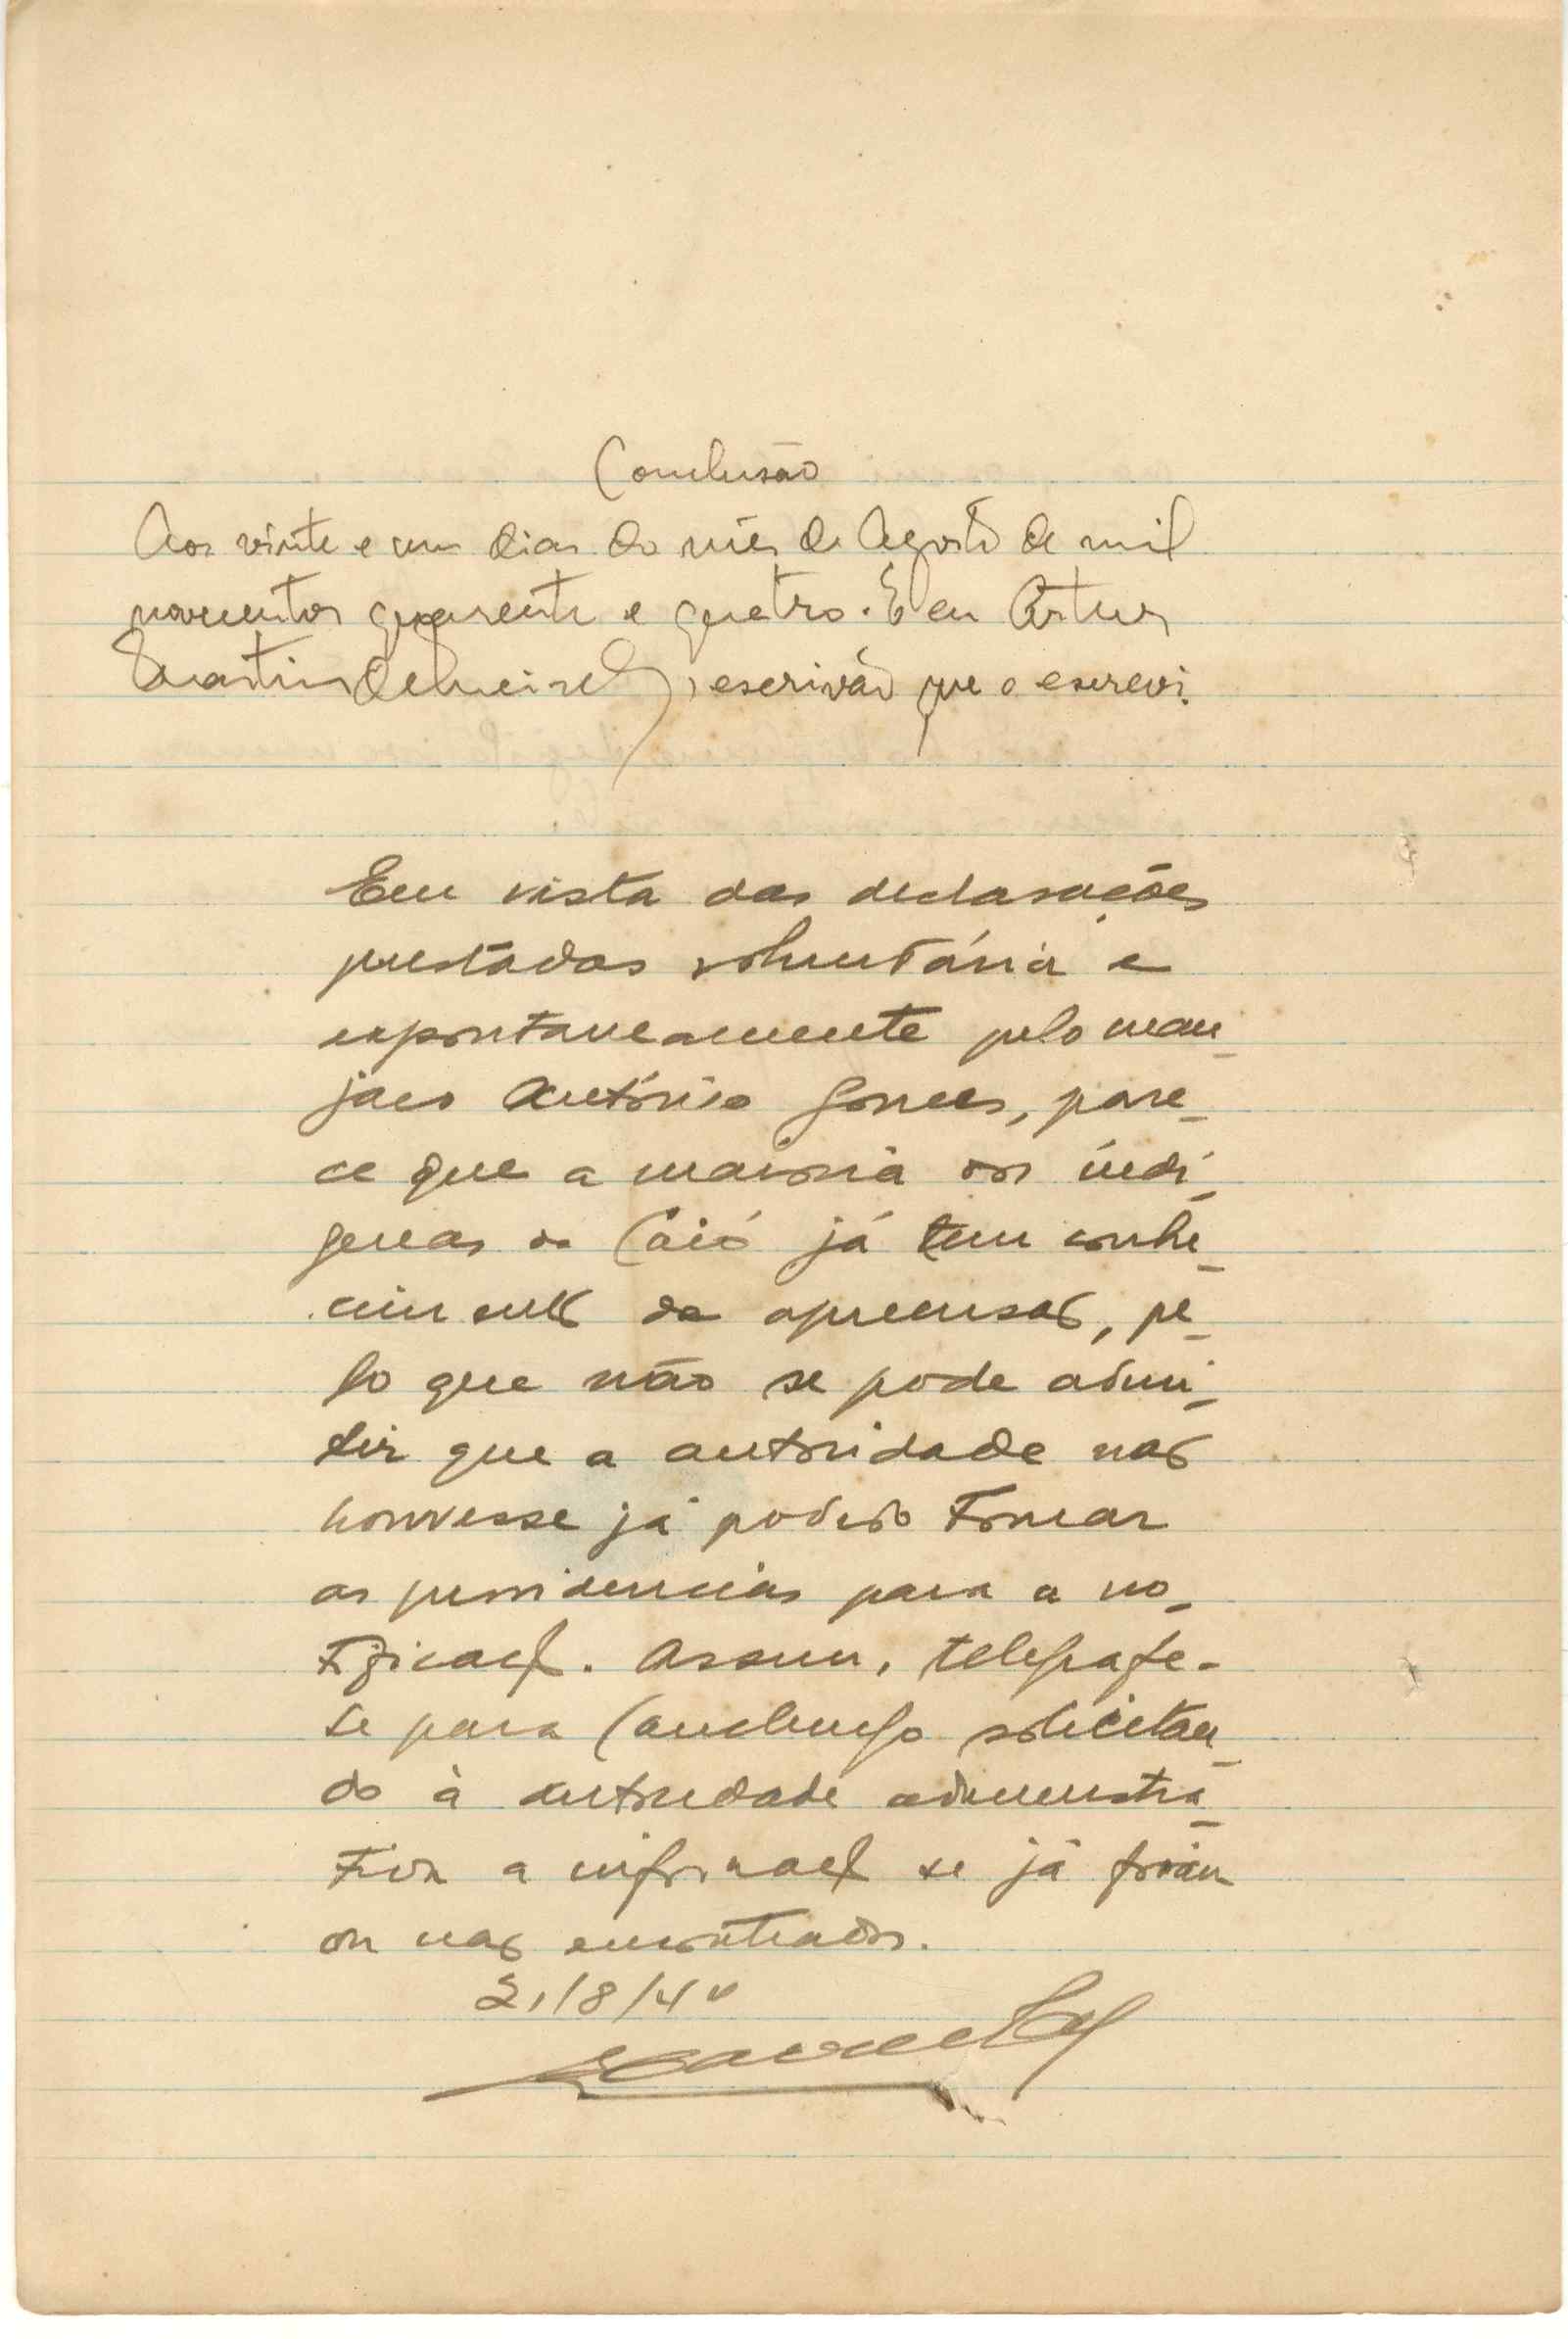 Conclusão
Aos vinte e um dias do mês de Agosto de mil
novecentos quarenta e quatro. E eu Artur
Martins de Meireles, escrivão que o escrevi.
Em vista das declarações
prestadas voluntária e
espontaneamente pelo man-
jaco António Gomes, pare-
ce que a maioria dos indí-
genas do Caió já tem conhe-
cimento da apreensão, pe-
lo que não se pode admi-
tir que a autoridade não
houvesse já podido tomar
as providencias para a no-
tificação. Assim, telegrafe-
se para Canchungo solicitan-
do à autoridade administra-
tiva a informação se já foram
ou não encontrados.
21/8/44